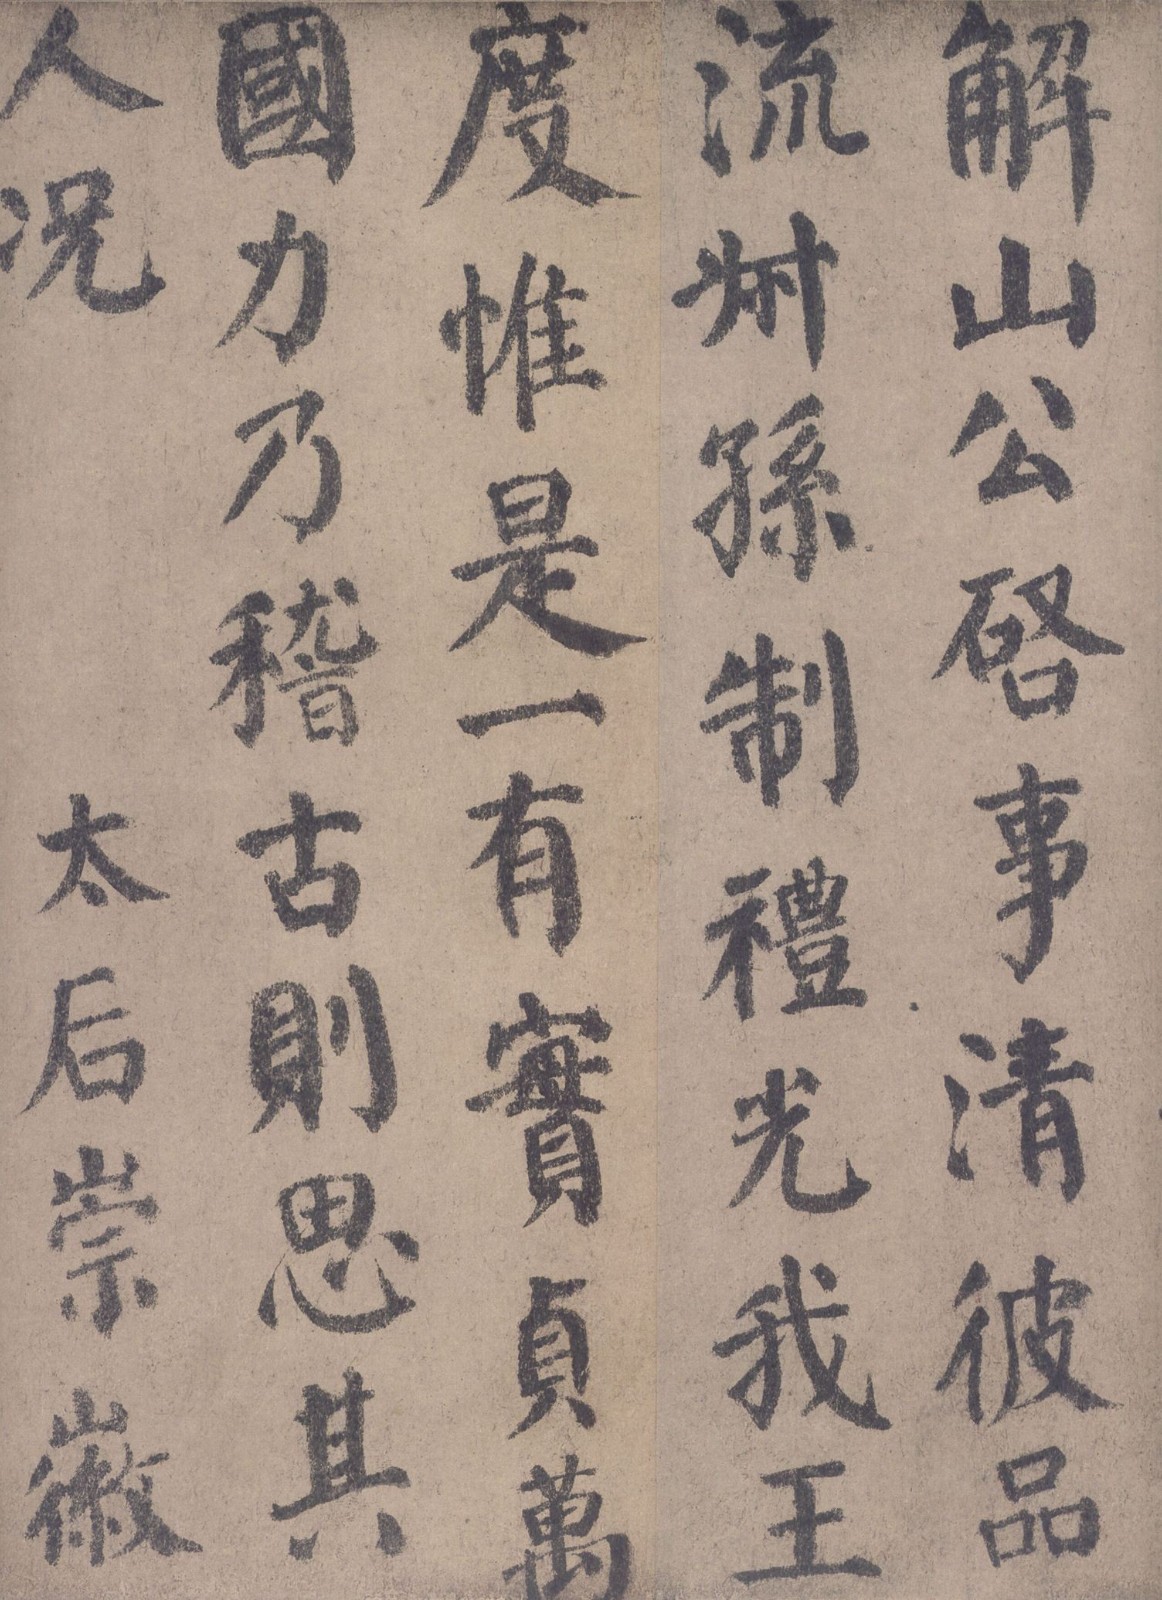 解山公啓事清彼品
流叔孫制禮光我王
度惟是一有實貞萬
國力乃稽古則思其
人況 太后崇徽